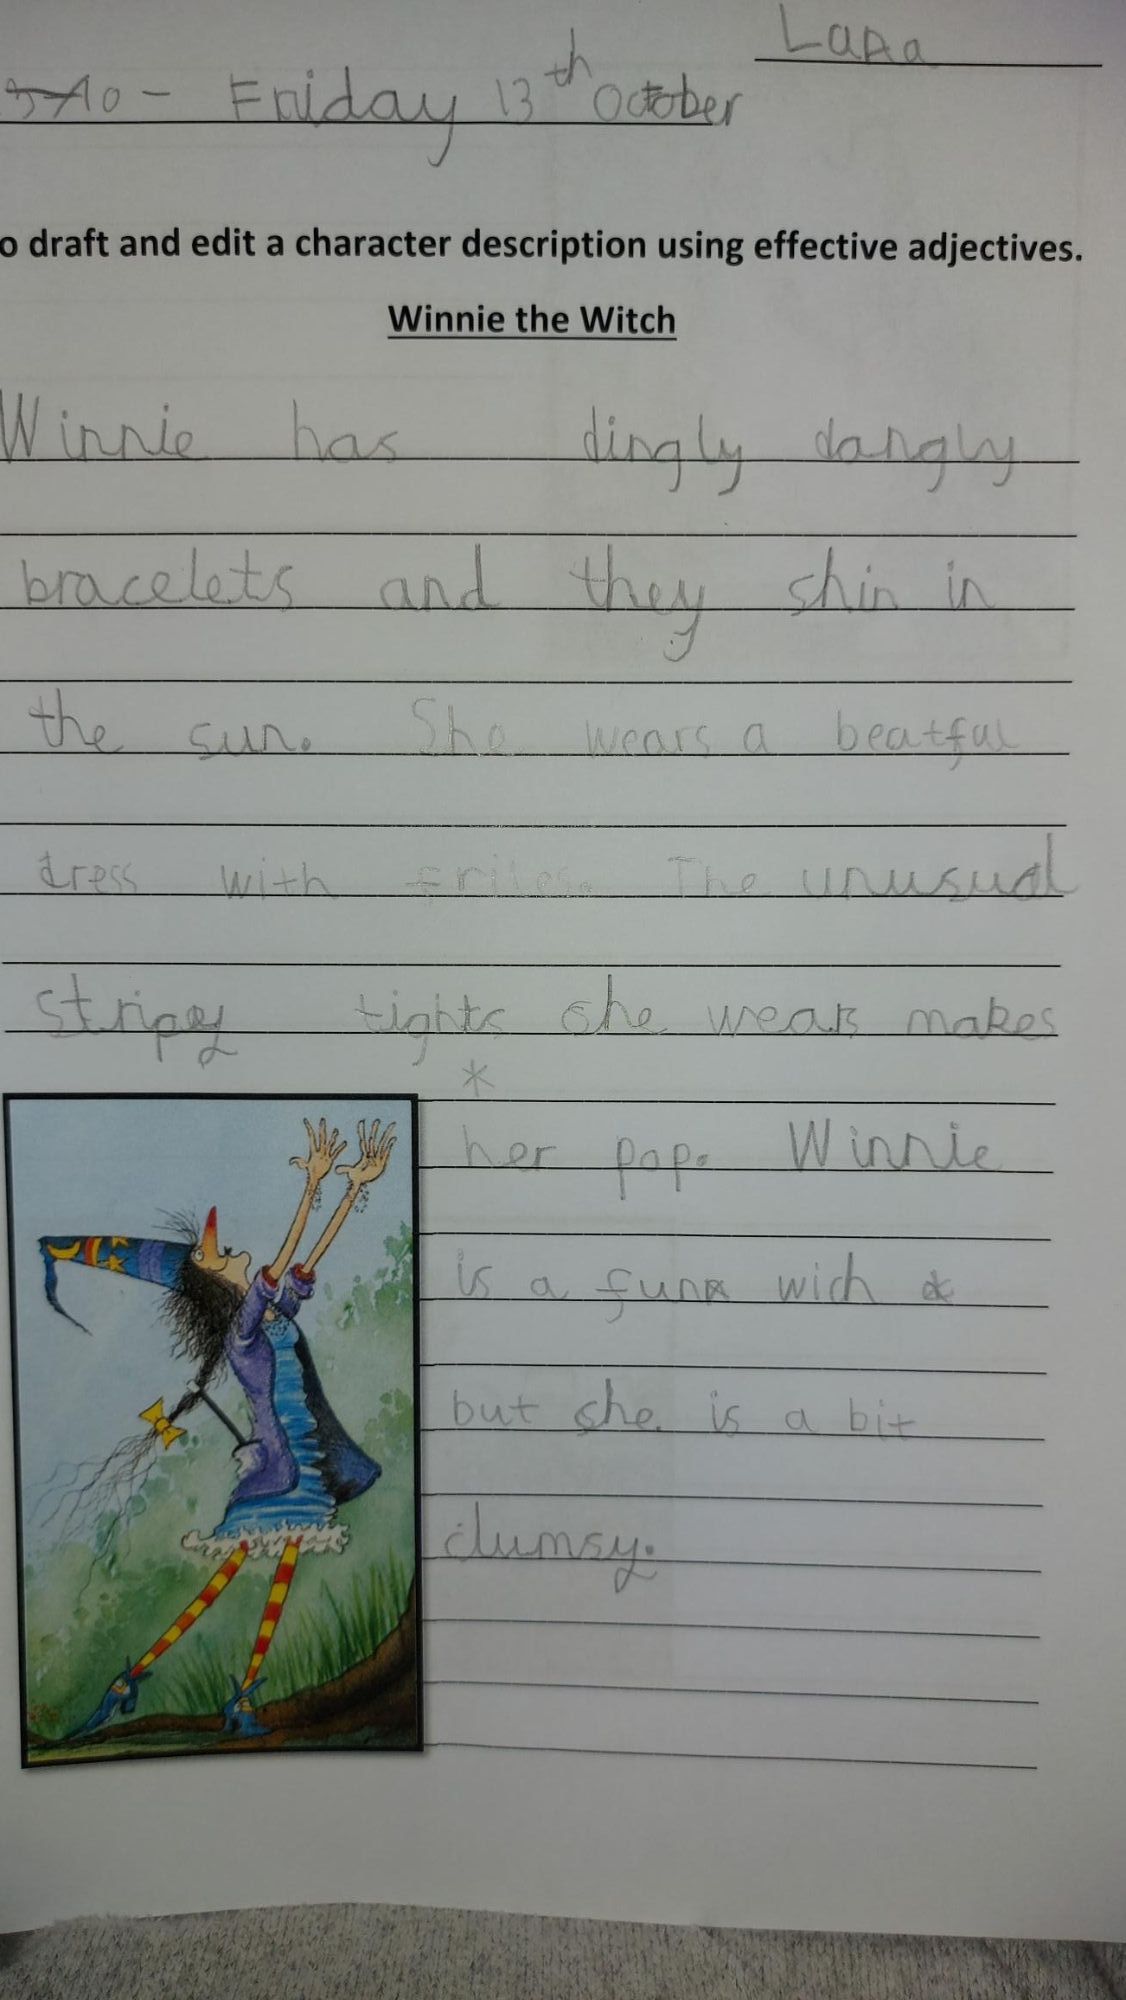 Lara
Friday 13th October
o draft and edit a character description using effective adjectives.
Winnie the Witch
Winnie has dingly dangly
bracelets and they shin in
the sun. She wears a beatful
dress with friles. The unusual
stripey tights she wears makes
*
her pop. Winnie
is a funn wich *
but she is a bit
clumsy.